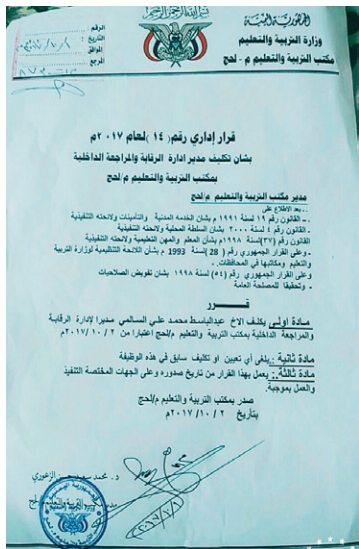 بسم الله الرحمن الرحيم
الجمهورية اليمنية
وزارة التربية والتعليم
مكتب التربية والتعليم م - لحج
الرقم :
التاريخ :
الموافق
المرجع
قرار إداري رقم( ١٤ )لعام ٢٠١٧م
بشان تكليف مدير ادارة الرقابة والمراجعة الداخلية
بمكتب التربية والتعليم م/لحج
مدير مكتب التربية والتعليم م/لحج
.. بعد الاطلاع على
- القانون رقم ١٩ لسنة ١٩٩١م بشان الخدمه المدنية والتأمينات ولائحته التنفيذية
- القانون رقم ٤ لسنة ٢٠٠٠ بشان السلطة المحلية ولائحته التنفيذية
القانون رقم (٣٧)لسنة ١٩٩٨م بشان المعلم والمهن التعليمية ولائحته التنفيذية
- وعلى القرار الجمهوري رقم (28)لسنة 1993م بشان اللائحة التنظيمية لوزارة التربية
والتعليم ومكاتبها في المحافظات.
وعلى القرار الجمهوري رقم (٥٤) لسنة ١٩٩٨ بشان تفويض الصلاحيات
- وتحقيقا للمصلحة العامة
قـــرر
مادة اولى يكلف الاخ عبدالباسط محمد علي السالمي مديرا لإدارة الرقابة
والمراجعة الداخلية بمكتب التربية والتعليم م/لحج اعتبارا من ٢ / ١٠ /٢٠١٧م
مادة ثانية :يلغى أي تعيين او تكليف سابق في هذه الوظيفة
مادة ثالثة: يعمل بهذا القرار من تاريخ صدوره وعلى الجهات المختصة التنفيذ
والعمل بموجبة.
صدر بمكتب التربية والتعليم م/لحج
بتأريخ ٢ / ١٠ / ٢٠١٧م
د. محمد سعيد الزعوري
مدير مكتب التربية والتعليم لحج